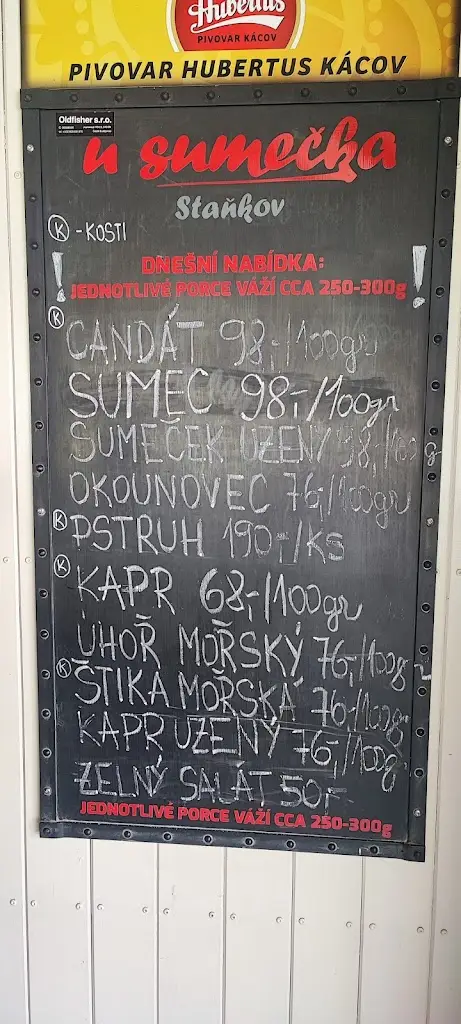 Hubertus
PIVOVAR KÁCOV
PIVOVAR HUBERTUS KÁCOV
Oldfisher s.r.o.
u sumečka
Staňkov
K - KOSTI
DNEŠNÍ NABÍDKA:
! JEDNOTLIVÉ PORCE VÁŽÍ CCA 250-300g !
K CANDÁT 98,-/100gr
SUMEC 98,-/100gr
SUMEČEK UZENÝ 98,-/100g
OKOUNOVEC 76,-/100gr
K PSTRUH 190,-/KS
K KAPR 68,-/100gr
ÚHOŘ MOŘSKÝ 76,-/100g
K ŠTIKA MOŘSKÁ 76,-/100g
KAPR UZENÝ 76,-/100g
ZELNÝ SALÁT 50,-
JEDNOTLIVÉ PORCE VÁŽÍ CCA 250-300g